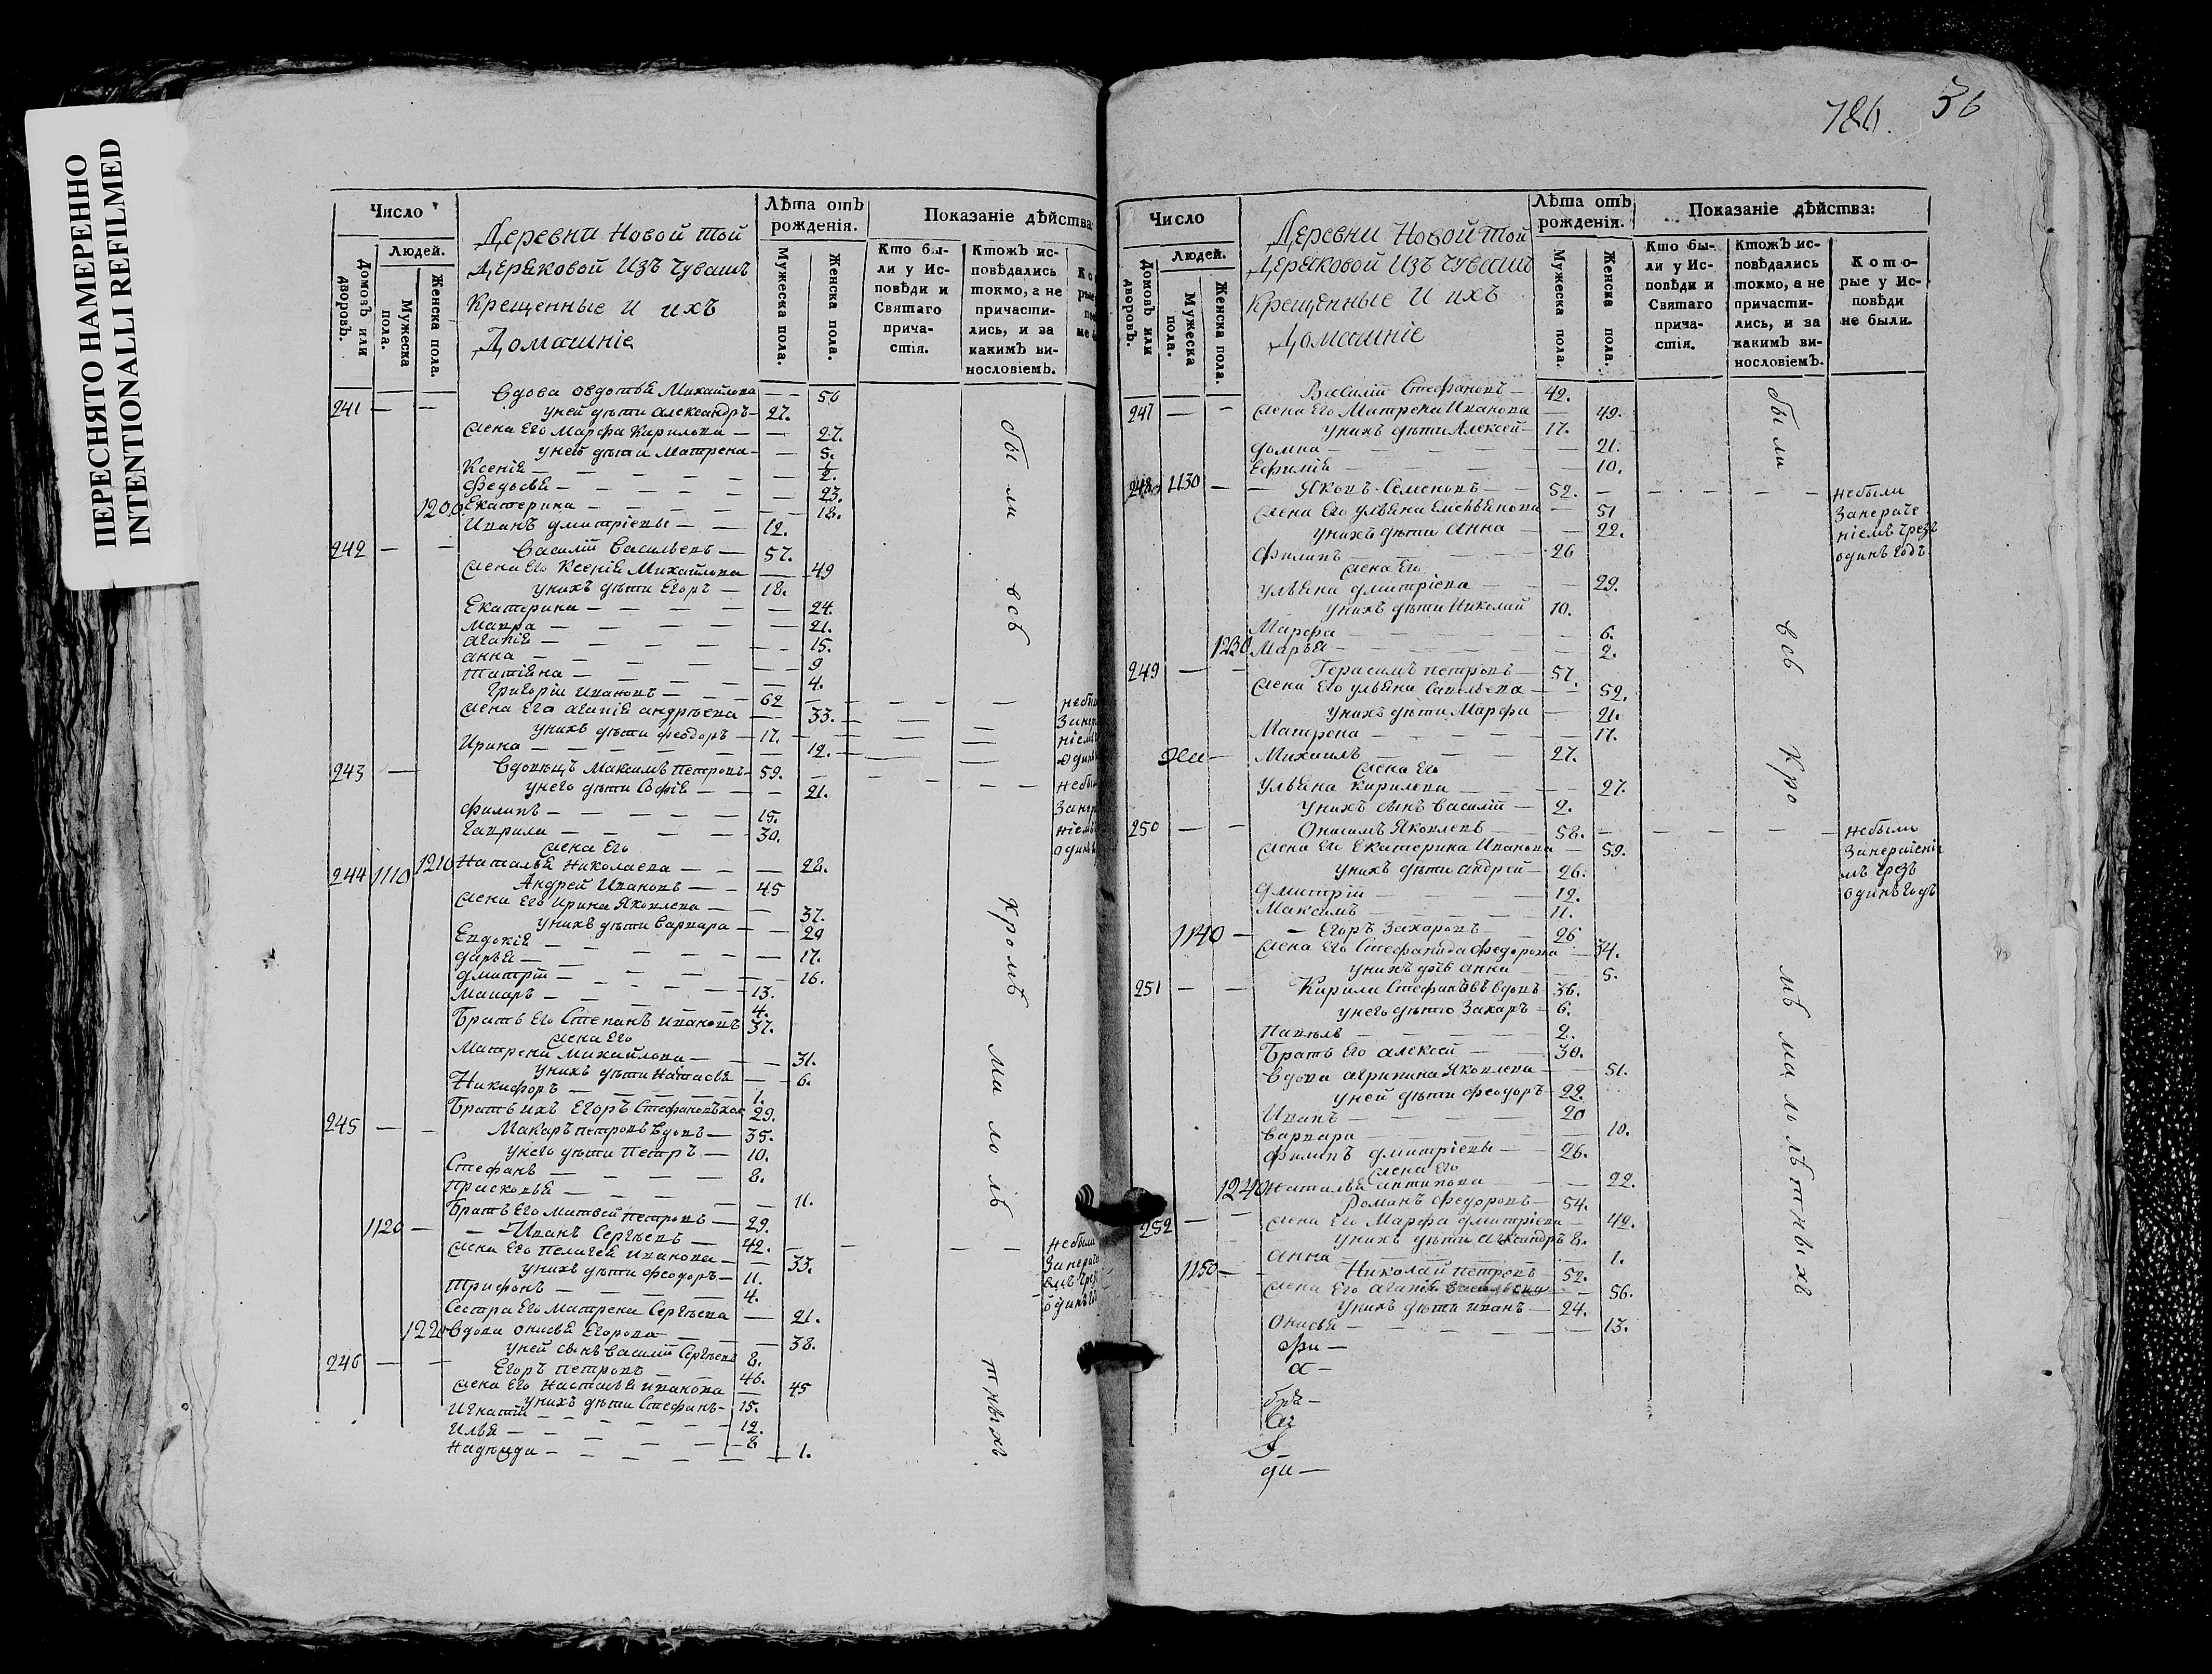 ПЕРЕСНЯТО НАМЕРЕННО
INTENTIONALLI REFILMED
Число
Людей.
Домовъ или дворовъ.
Мужеска пола.
Женска пола.
Деревни Новой той
Дерѧковой изъ чувашъ
Крещенные и ихъ
Домашніе
Лѣта отъ рожденія.
Мужеска пола.
Женска пола.
Показаніе дѣйства:
Кто были у Исповѣди и Святаго причастія.
Ктожъ исповѣдались токмо, а не причастились, и за какимъ винословіемъ.
вдова овдотьѧ Михайлова — — 56
241 — — уней дѣти александръ — 27.
жена Его Марфа Кирилова — — 27.
уней дѣти Матрена — — 5.
Ксеніѧ —
Федосьѧ — 2.
1200 Екатерина — 23.
18.
Иванъ дмитріевъ — — 12.
242 — — Василій васильевъ — 57.
жена Его Ксеніѧ Михайлова — 49
унихъ дѣти Егоръ — 18.
Екатерина — 24.
Мавра — 21.
агапіѧ — 15.
анна — 9
татіѧна — 4.
Григорій ивановъ — 62
жена Его агапіѧ андрѣева — 33.
унихъ дѣти феодоръ — 17.
Ирина — 12.
243 — вдовецъ Максимъ петровъ — 59.
унего дѣти Софіѧ — 21.
филипъ — 15.
Гаврила — 30.
жена Его
1210 Наталья Николаева — 28.
244 1110 Андрей Ивановъ — 45
жена Его Ирина Яковлева — 37.
унихъ дѣти варвара — 29
Евдокіѧ — 17.
дарьѧ — 16.
дмитрій — 13.
Макаръ — 4.
Братъ Его Степанъ ивановъ 37.
жена Его
Матрена Михайлова — 31.
унихъ дѣти Настасьѧ — 6.
Никифоръ — 1.
Братъ ихъ Егоръ Стефановъ 29.
245 — — Макаръ петровъ вдовъ — 35.
унего дѣти Петръ — 10.
Стефанъ — 8.
Прасковьѧ — 11.
Братъ Его Матвей петровъ — 29.
1120 — — Иванъ Сергѣевъ — 42.
жена Его пелагеѧ иванова — 33.
унихъ дѣти феодоръ — 11.
Трифонъ — 4.
Сестра Его Матрена Сергѣева — 21.
1220 вдова онисьѧ Егорова — 38.
уней сынъ василій Сергѣевъ 8.
246 — — Егоръ петровъ 46.
жена Его Настасьѧ иванова — 45
унихъ дѣти Стефанъ — 15.
Игнатій — 12.
Ильѧ — 8
Надѣжда — 1.
были всѣ Кромѣ малолѣтныхъ
786. 36
Число
Людей.
Домовъ или дворовъ.
Мужеска пола.
Женска пола.
Деревни Новой той
Дерѧковой изъ чувашъ
Крещенные и ихъ
Домашніе
Лѣта отъ рожденія.
Мужеска пола.
Женска пола.
Показаніе дѣйства:
Кто были у Исповѣди и Святаго причастія.
Ктожъ исповѣдались токмо, а не причастились, и за какимъ винословіемъ.
Которые у Исповѣди не были.
Василій Стефановъ — 42.
247 — — жена Его Матрена Иванова — 49.
унихъ дѣти Алексей — 17.
домна — 21.
Ефиміѧ — 10.
248 1130 — Яковъ Семеновъ — 52. — небыли
жена Его ульѧна 51
унихъ дѣти анна — 22.
филипъ — 26 одинъ годъ
жена Его
ульѧна дмитріева — 29.
унихъ дѣти Николай 10.
Марфа — 6.
1230 Марьѧ — 2.
249 — — Герасимъ петровъ — 57.
жена Его ульѧна Савельева — 52.
унихъ дѣти Марфа — 21.
Матрена — 17.
Михаилъ — 27.
жена Его
ульѧна кирилева — 27.
унихъ сынъ василій — 2.
250 — — Онисимъ Яковлевъ — 58. — небыли
жена Его Екатерина Иванова — 59.
унихъ дѣти андрей — 26.
дмитрій — 12. одинъ годъ
Максимъ — 11.
1140 — — Егоръ Захаровъ — 26
жена Его Стефанида федорова — 34.
унихъ дочь анна — 5.
251 — — Кирила Стефановъ вдовъ 36.
унего дѣти Захаръ — 6.
Павелъ — 2.
Братъ Его алексей — 30.
вдова агрипина Яковлева — 51.
уней дѣти феодоръ — 22.
Иванъ — 20
варвара — 10.
филипъ дмитріевъ — 26.
жена Его
1240 наталья антипова — 22.
Романъ федоровъ — 54.
252 — — жена Его Марфа дмитріева — 42.
унихъ дѣти александръ 8.
анна — 1.
1150 — Николай петровъ — 52.
жена Его агапіѧ васильева — 56.
унихъ дѣти иванъ — 24.
Онисьѧ — 13.
были всѣ Кромѣ малолѣтныхъ